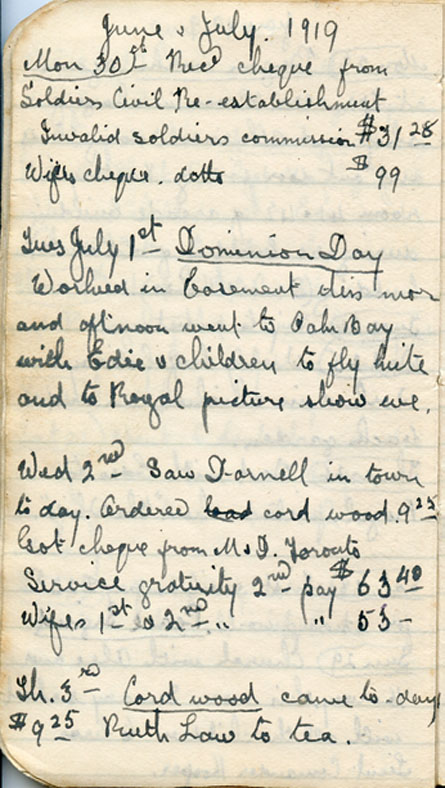 June & July. 1919
Mon 30th Recd cheque from
Soldiers Civil Re-establishment
Invalid soldiers commission $31 28
Wifes cheque. dotto $99
Tues July 1st Dominion Day
Worked in basement this mor
and aftnoon went to Oak Bay
with Edie & children to fly kite
and to Royal picture show eve.
Wed 2nd Saw Darnell in town
to day. Ordered load cord wood. 9 25
Got cheque from M & D. Toronto
Service gratuity 2nd pay $63 40
Wifes 1st & 2nd " " 53 -
Th. 3rd Cord wood came to-day
$9 25 Ruth Law to tea.